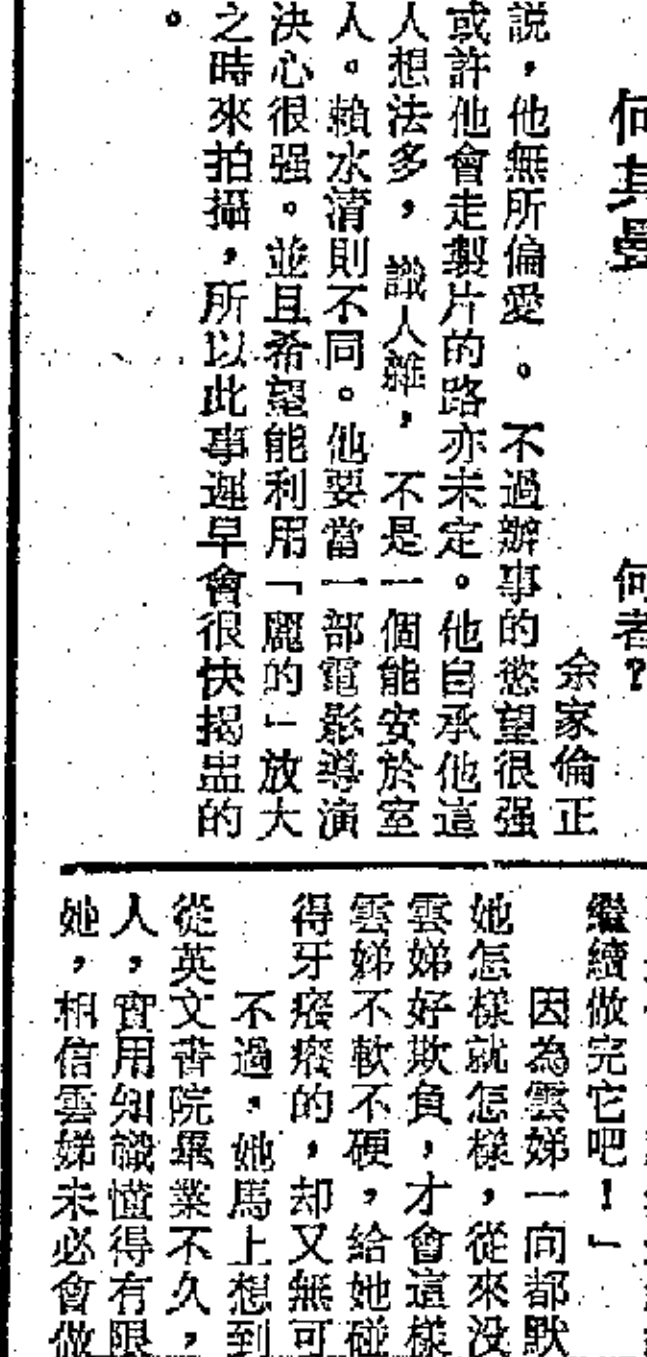 何其
何者?
余家倫正
說,他無所偏愛。不過辦事的慾望很强
或許他會走製片的路亦未定。他自承他這
人想法多,識人雜,不是一個能安於室
人。賴水清則不同。他要當一部電影導演
決心很强。並且希望能利用「麗的」放大
之時來拍攝,所以此事遲早會很快揭盅的
。
繼續做完它吧!」
因為雲娣一向都默
她怎樣就怎樣,從來没
雲娣好欺負,才會這樣
雲娣不軟不硬,給她碰
得牙癢癢的,却又無可
不過,她馬上想到
從英文書院畢業不久,
人,實用知識懂得有限
她,相信雲娣未必會做